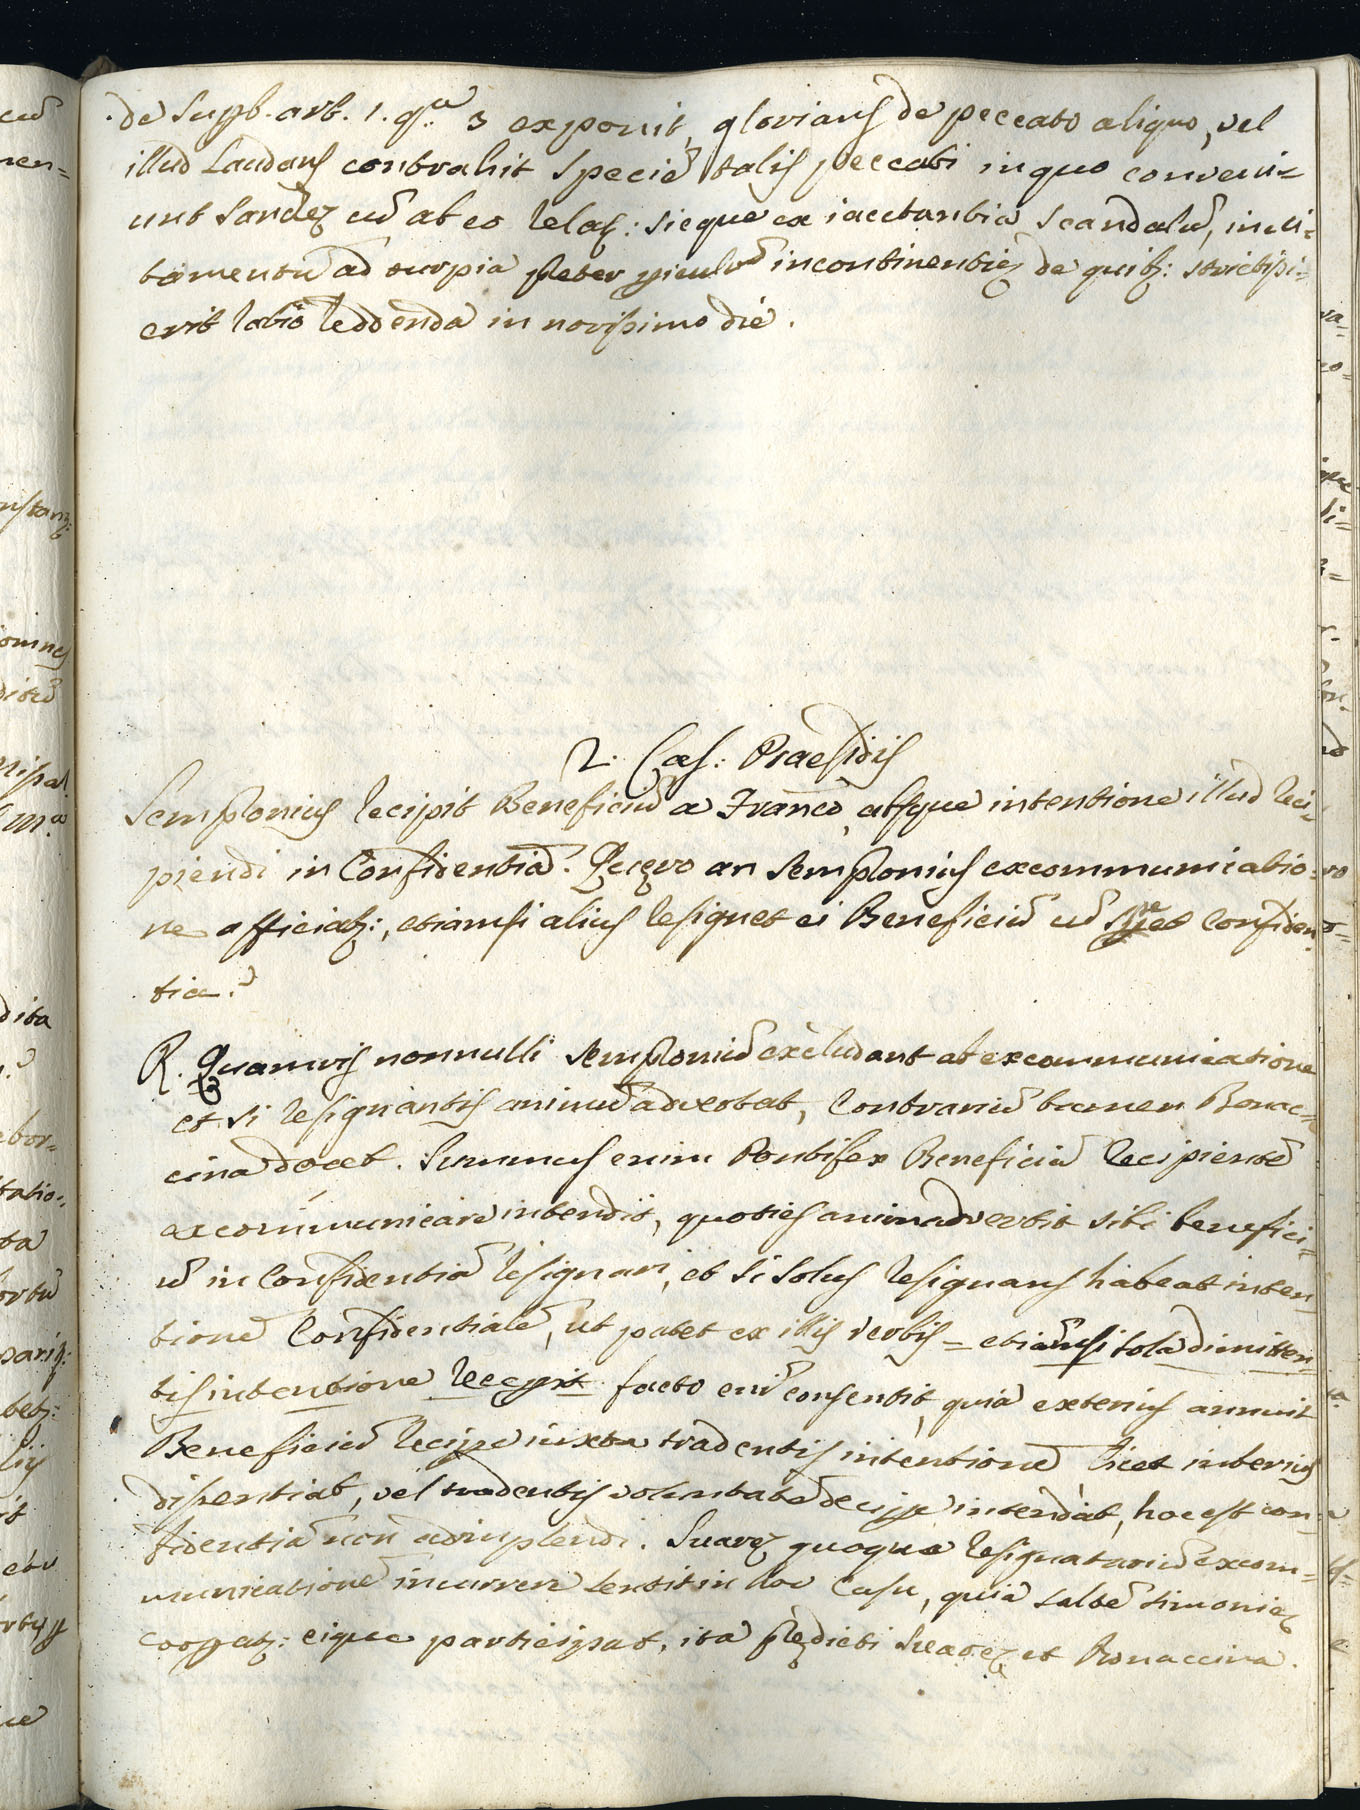 de Superb. art. 1. q.ᵃ 3 exponit, glorians de peccato aliquo, vel
illud Laudans contrahit Speciē talis peccati in quo conveni=
unt Sanchez cū ab eo relat: sicque ex iactantia scandalū, inci=
tamentū ad turpia patet piculū incontinentię de quib: strictissi=
erit ratio reddenda in novissimo die.
2. Cas: Praesidis
Sempronius recipit Beneficiū a Franco, absque intentione illud reci=
piendi in Confidentia. Quęro an Sempronius excommunicatio=
ne afficiat:, etiamsi alius resignet ei Beneficiū cū spe Confiden
tiae?
R. Quamvis nonnulli Semproniū excludant ab excommunicatione
et si resignantis animū advertat, Contrariū tamen Bonac=
cina docet. Summus enim Pontifex Beneficiū recipientē
excommunicare intendit, quoties animadvertit sibi benefici=
ū in Confidentia resignari, et si solus resignans habeat inten=
tionē Confidentialē, ut patet ex illis verbis = etiamsi sola dimitten
tis intentione recepit. facto enī consentit, quia exterius annuit
Beneficiū recipe iuxta tradentis intentionē licet interius
dissentiat, vel tradentis voluntatē decipe intendat, hoc est con=
fidentiā non adimplendi. Suarez quoque resignatariū excom=
municationē incurrere sentit in hoc Casu, quia saltē simonię
coopat: eique participat, ita prędicti Suarez et Bonaccina.